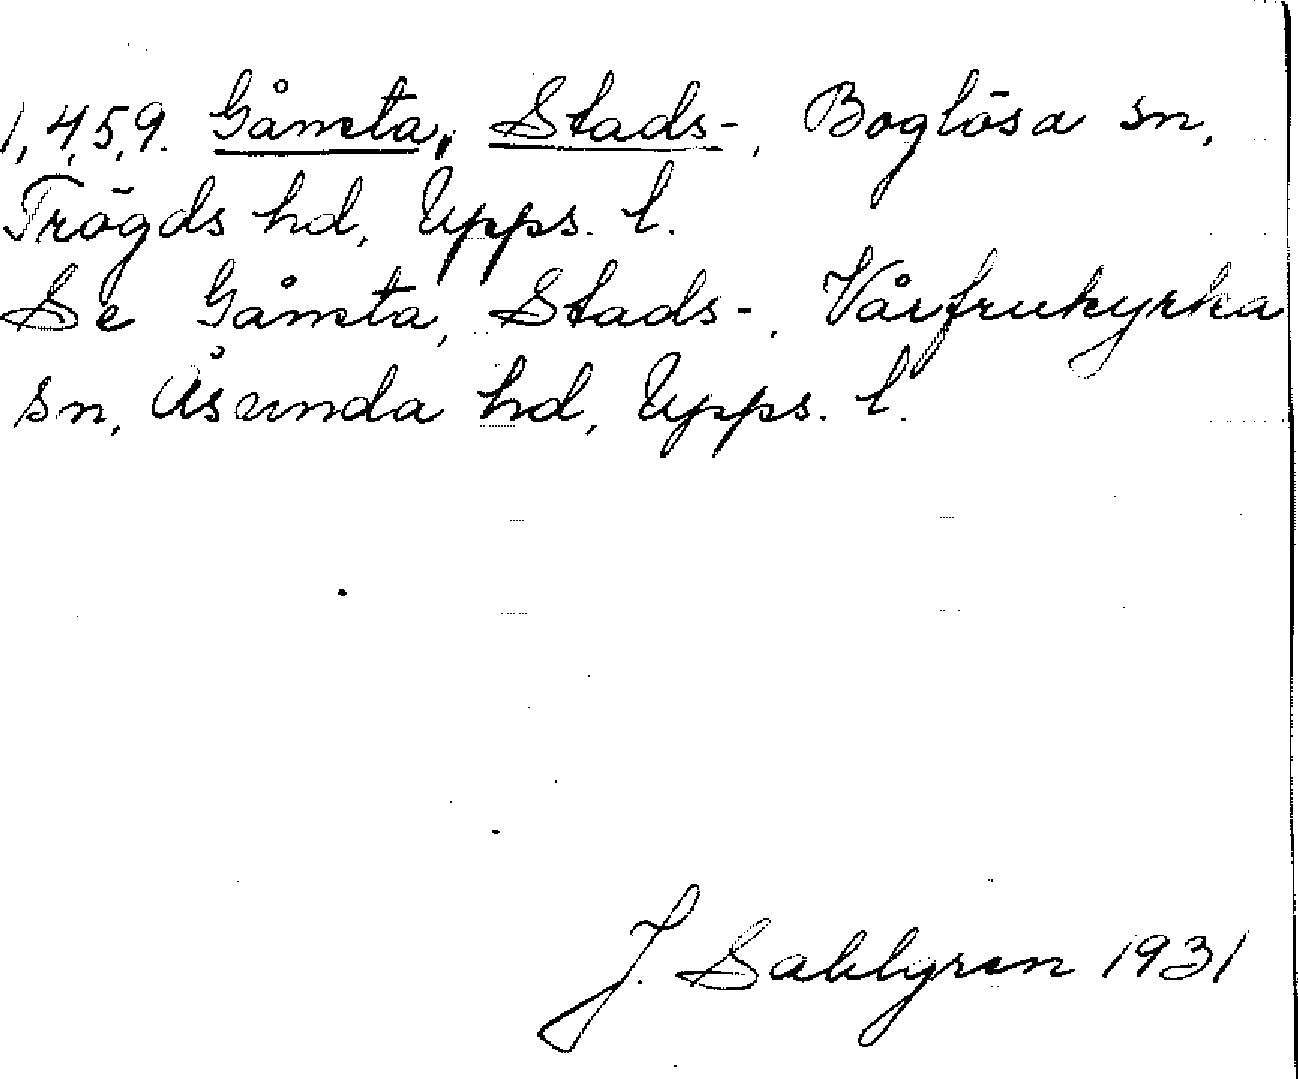 1,4,5,9. Gåmsta, Stads-, Boglösa sn,
Trögds hd, Upps. l.
Se Gåmsta, Stads-, Vårfrukyrka
sn, Åsunda hd, Upps. l.
J. Sahlgren 1931